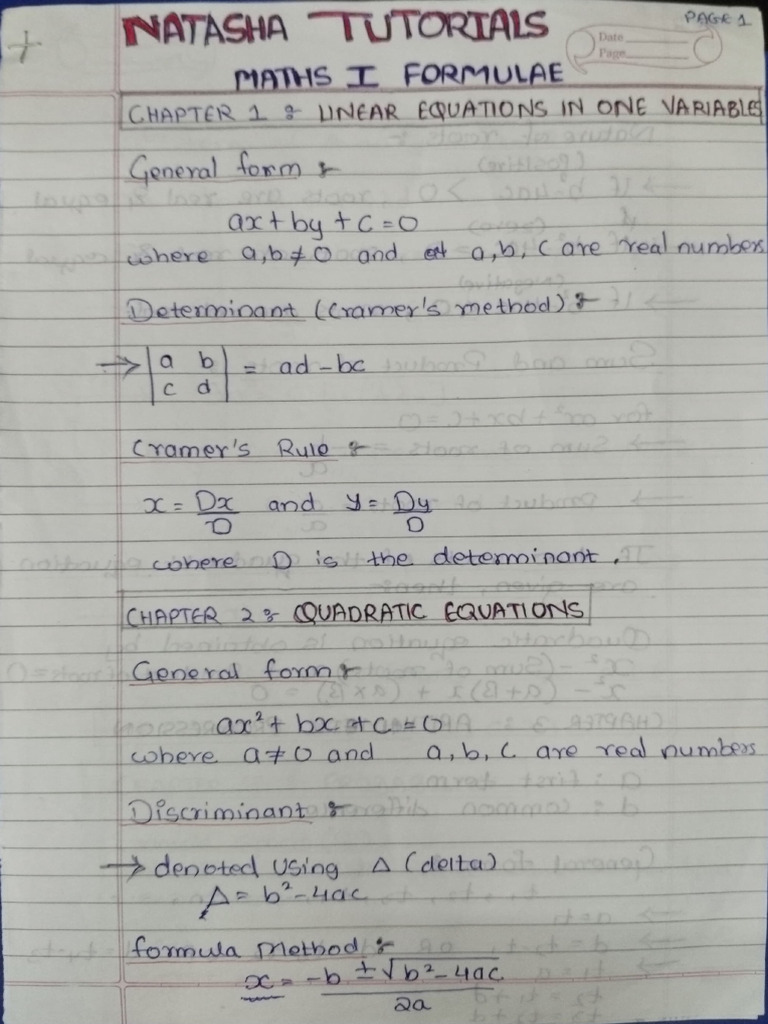 PAGE 1
NATASHA TUTORIALS
Date
Page
MATHS I FORMULAE
CHAPTER 1 : LINEAR EQUATIONS IN ONE VARIABLES
General form :-
ax + by + c = 0
where a, b ≠ 0 and a, b, c are real numbers
Determinant (Cramer's method) :-
→ | a b | = ad - bc
| c d |
Cramer's Rule :-
x = Dx/D and y = Dy/D
where D is the determinant.
CHAPTER 2 : QUADRATIC EQUATIONS
General form :-
ax² + bx + c = 0
where a ≠ 0 and a, b, c are real numbers
Discriminant :-
→ denoted using Δ (delta)
Δ = b² - 4ac
formula method :-
x = -b ± √b² - 4ac / 2a